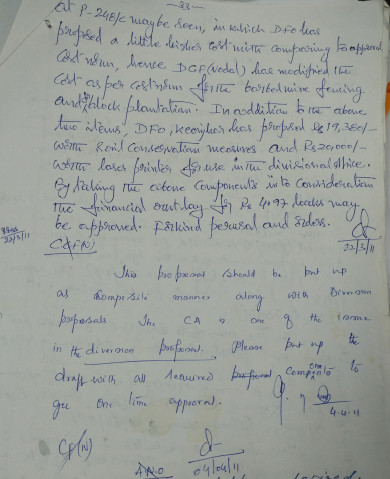 - 33 -
at P-248/c may be seen, in which DFO has
proposed a little higher cost with comparing to approved
cost norm, hence DCF (Nodal) has modified the
cost as per cost norm for the barbed wire fencing
and block plantation. In addition to the above
two items, DFO, Keonjhar has proposed Rs 19,380/-
worth Soil Conservation measures and Rs 20,000/-
worth laser printer for use in the divisional office.
By taking the above components into consideration
the financial outlay for Rs 4.97 lakhs may
be approved. For kind perusal and orders.
22/3/11
22/3/11
CCF(N)
This proposal should be put up
as composite manner along with Diversion
proposals. The CA is one of the
in the diversion proposal. Please put up the
draft with all required components to
get one time approval.
4.4.11
CF(N)
04/04/11